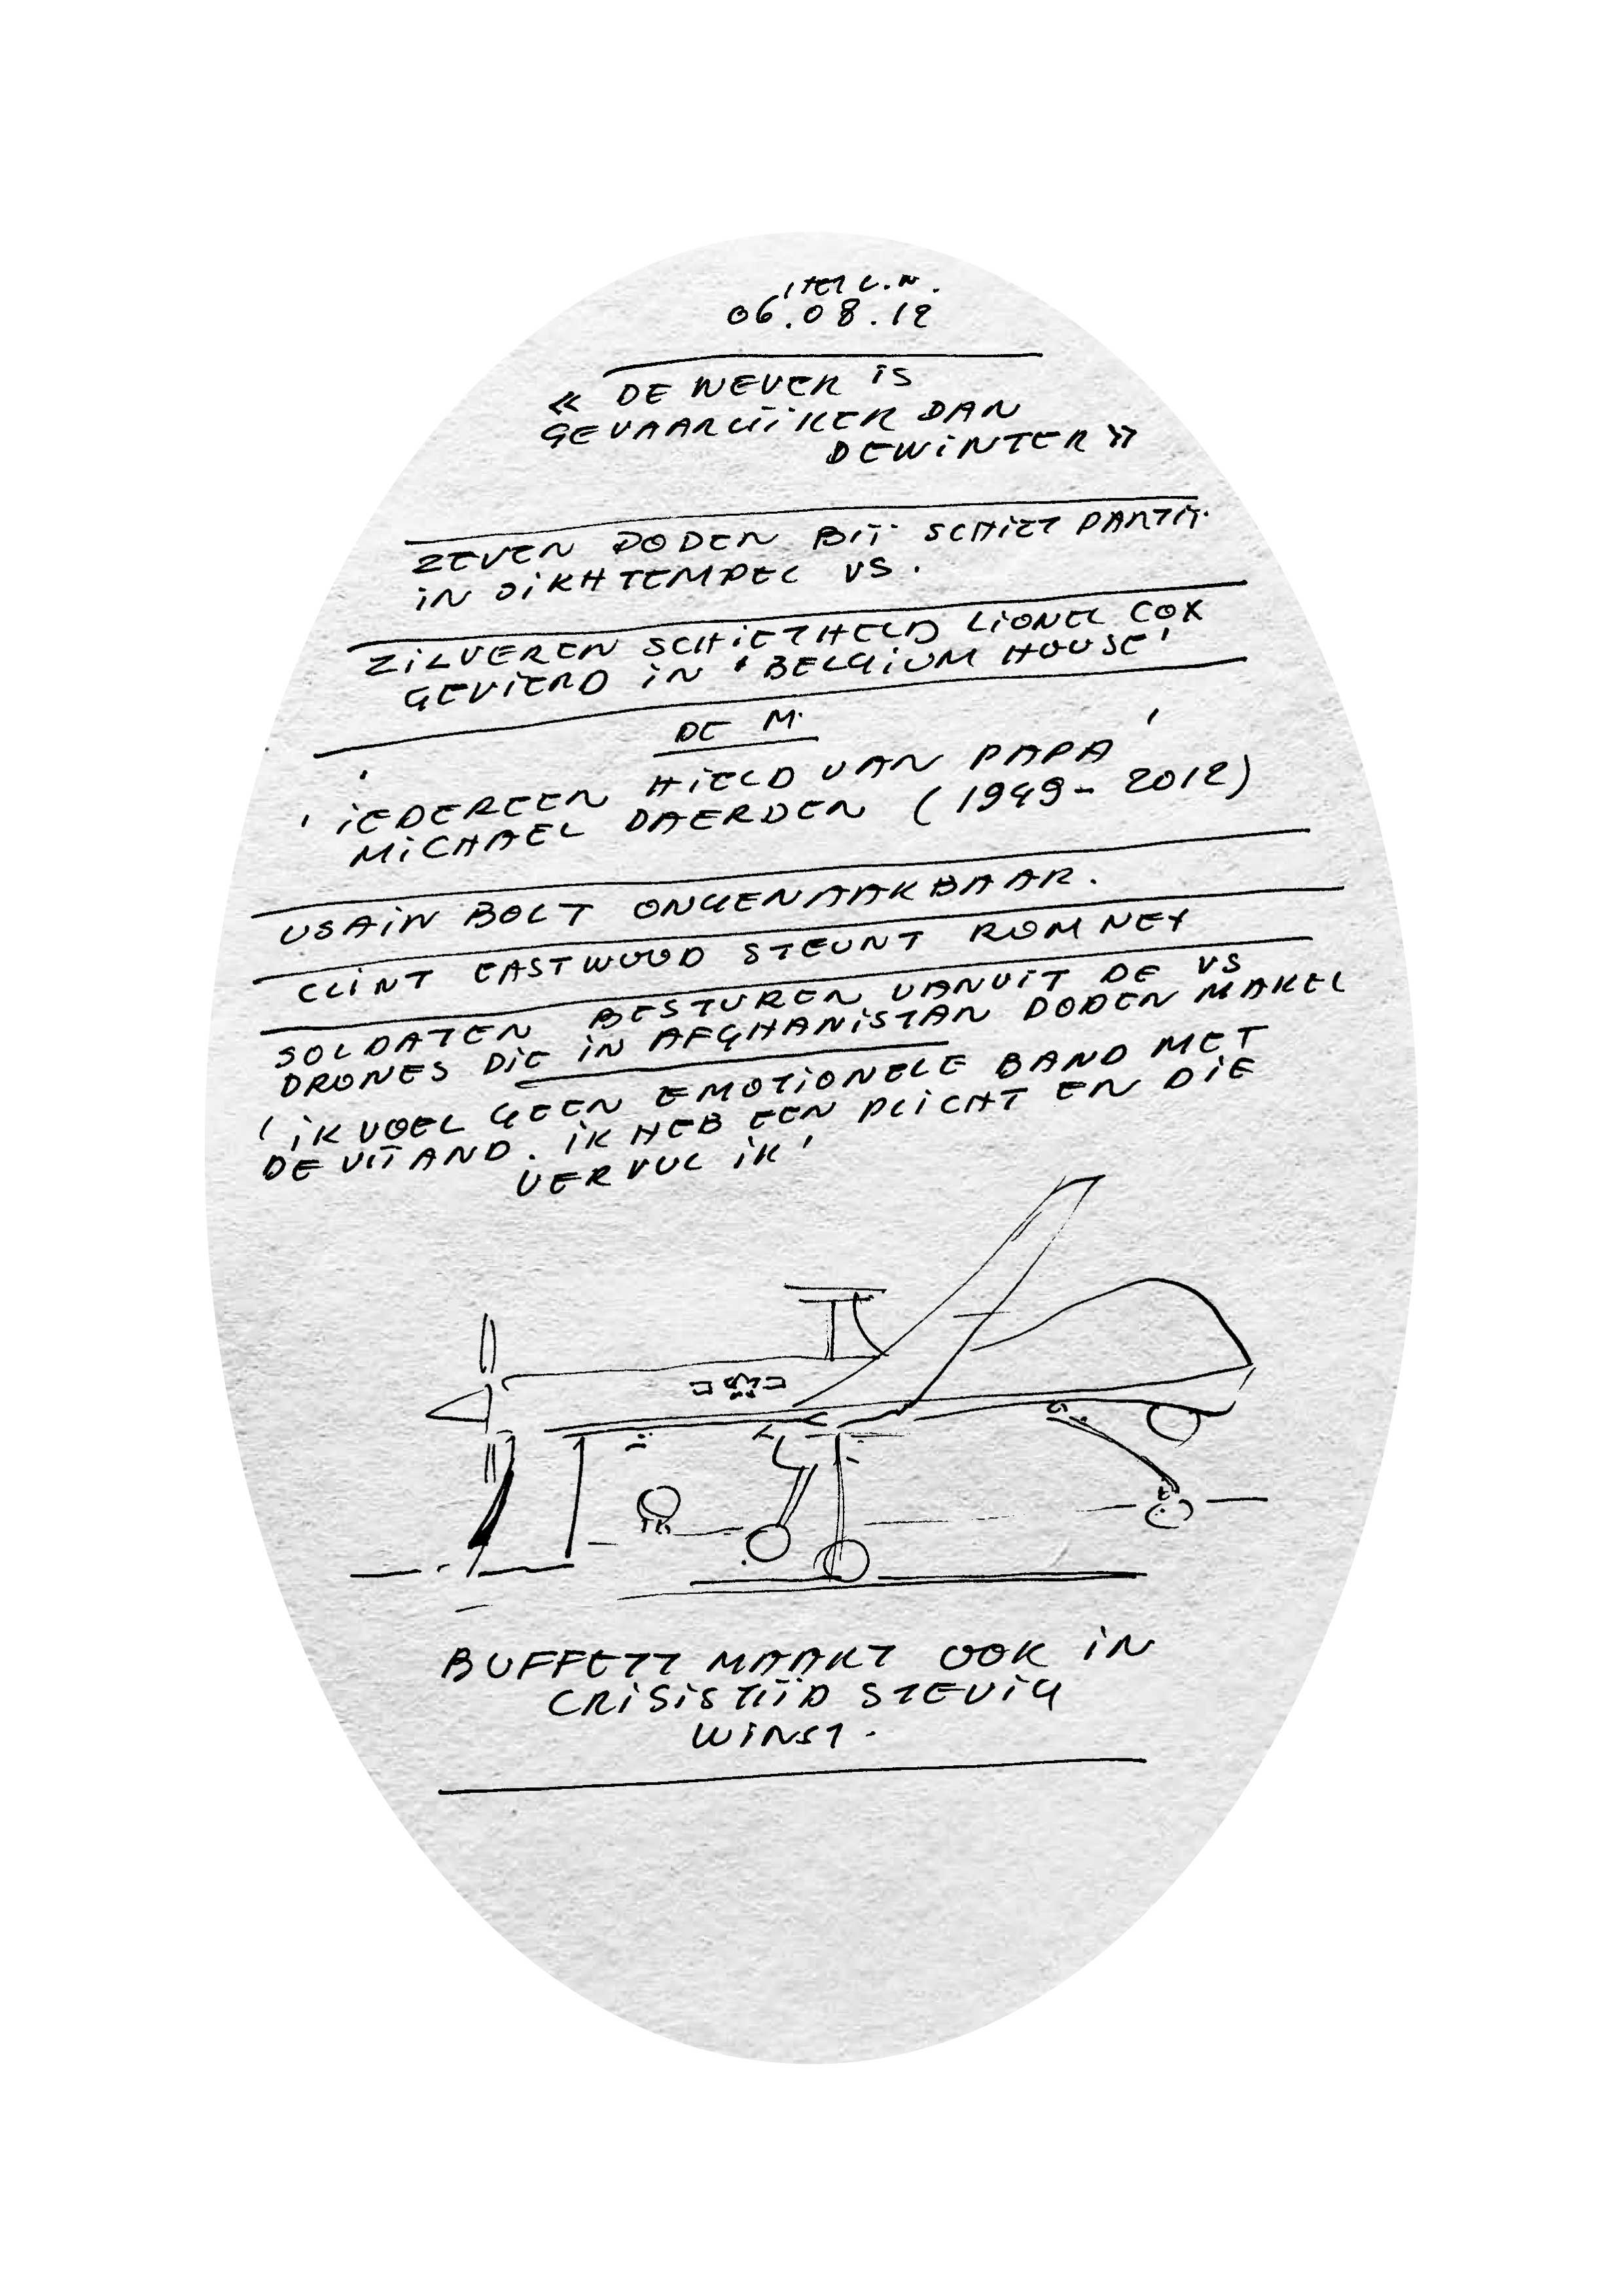 HET L.N.
06.08.12
« DE WEVER IS
GEVAARLIJKER DAN
DEWINTER »
ZEVEN DODEN BIJ SCHIETPARTIJ.
IN SIKHTEMPEL VS.
ZILVEREN SCHIETHELD LIONEL COX
GEVIERD IN 'BELGIUM HOUSE'
DE M.
'IEDEREEN HIELD VAN PAPA'
MICHAEL DAERDEN (1949-2012)
USAIN BOLT ONGENAAKBAAR.
CLINT EASTWOOD STEUNT ROMNEY
SOLDATEN BESTUREN VANUIT DE VS
DRONES DIE IN AFGHANISTAN DODEN MAKEL
'IK VOEL GEEN EMOTIONELE BAND MET
DE VIJAND. IK HEB EEN PLICHT EN DIE
VERVUL IK'
BUFFETT MAAKT OOK IN
CRISISTIJD STEVIG
WINST.